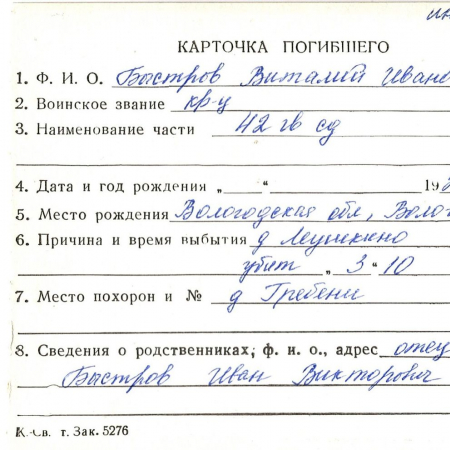 ин
КАРТОЧКА ПОГИБШЕГО
1. Ф. И. О. Быстров Виталий Ивано
2. Воинское звание кр-ц
3. Наименование части 42 гв сд
4. Дата и год рождения „ “ 192
5. Место рождения Вологодская обл, Волог
6. Причина и время выбытия д Леушкино
убит „ 3 “ 10
7. Место похорон и № д Гребени
8. Сведения о родственниках, ф. и. о., адрес отец
Быстров Иван Викторович
К.-Св. т. Зак. 5276